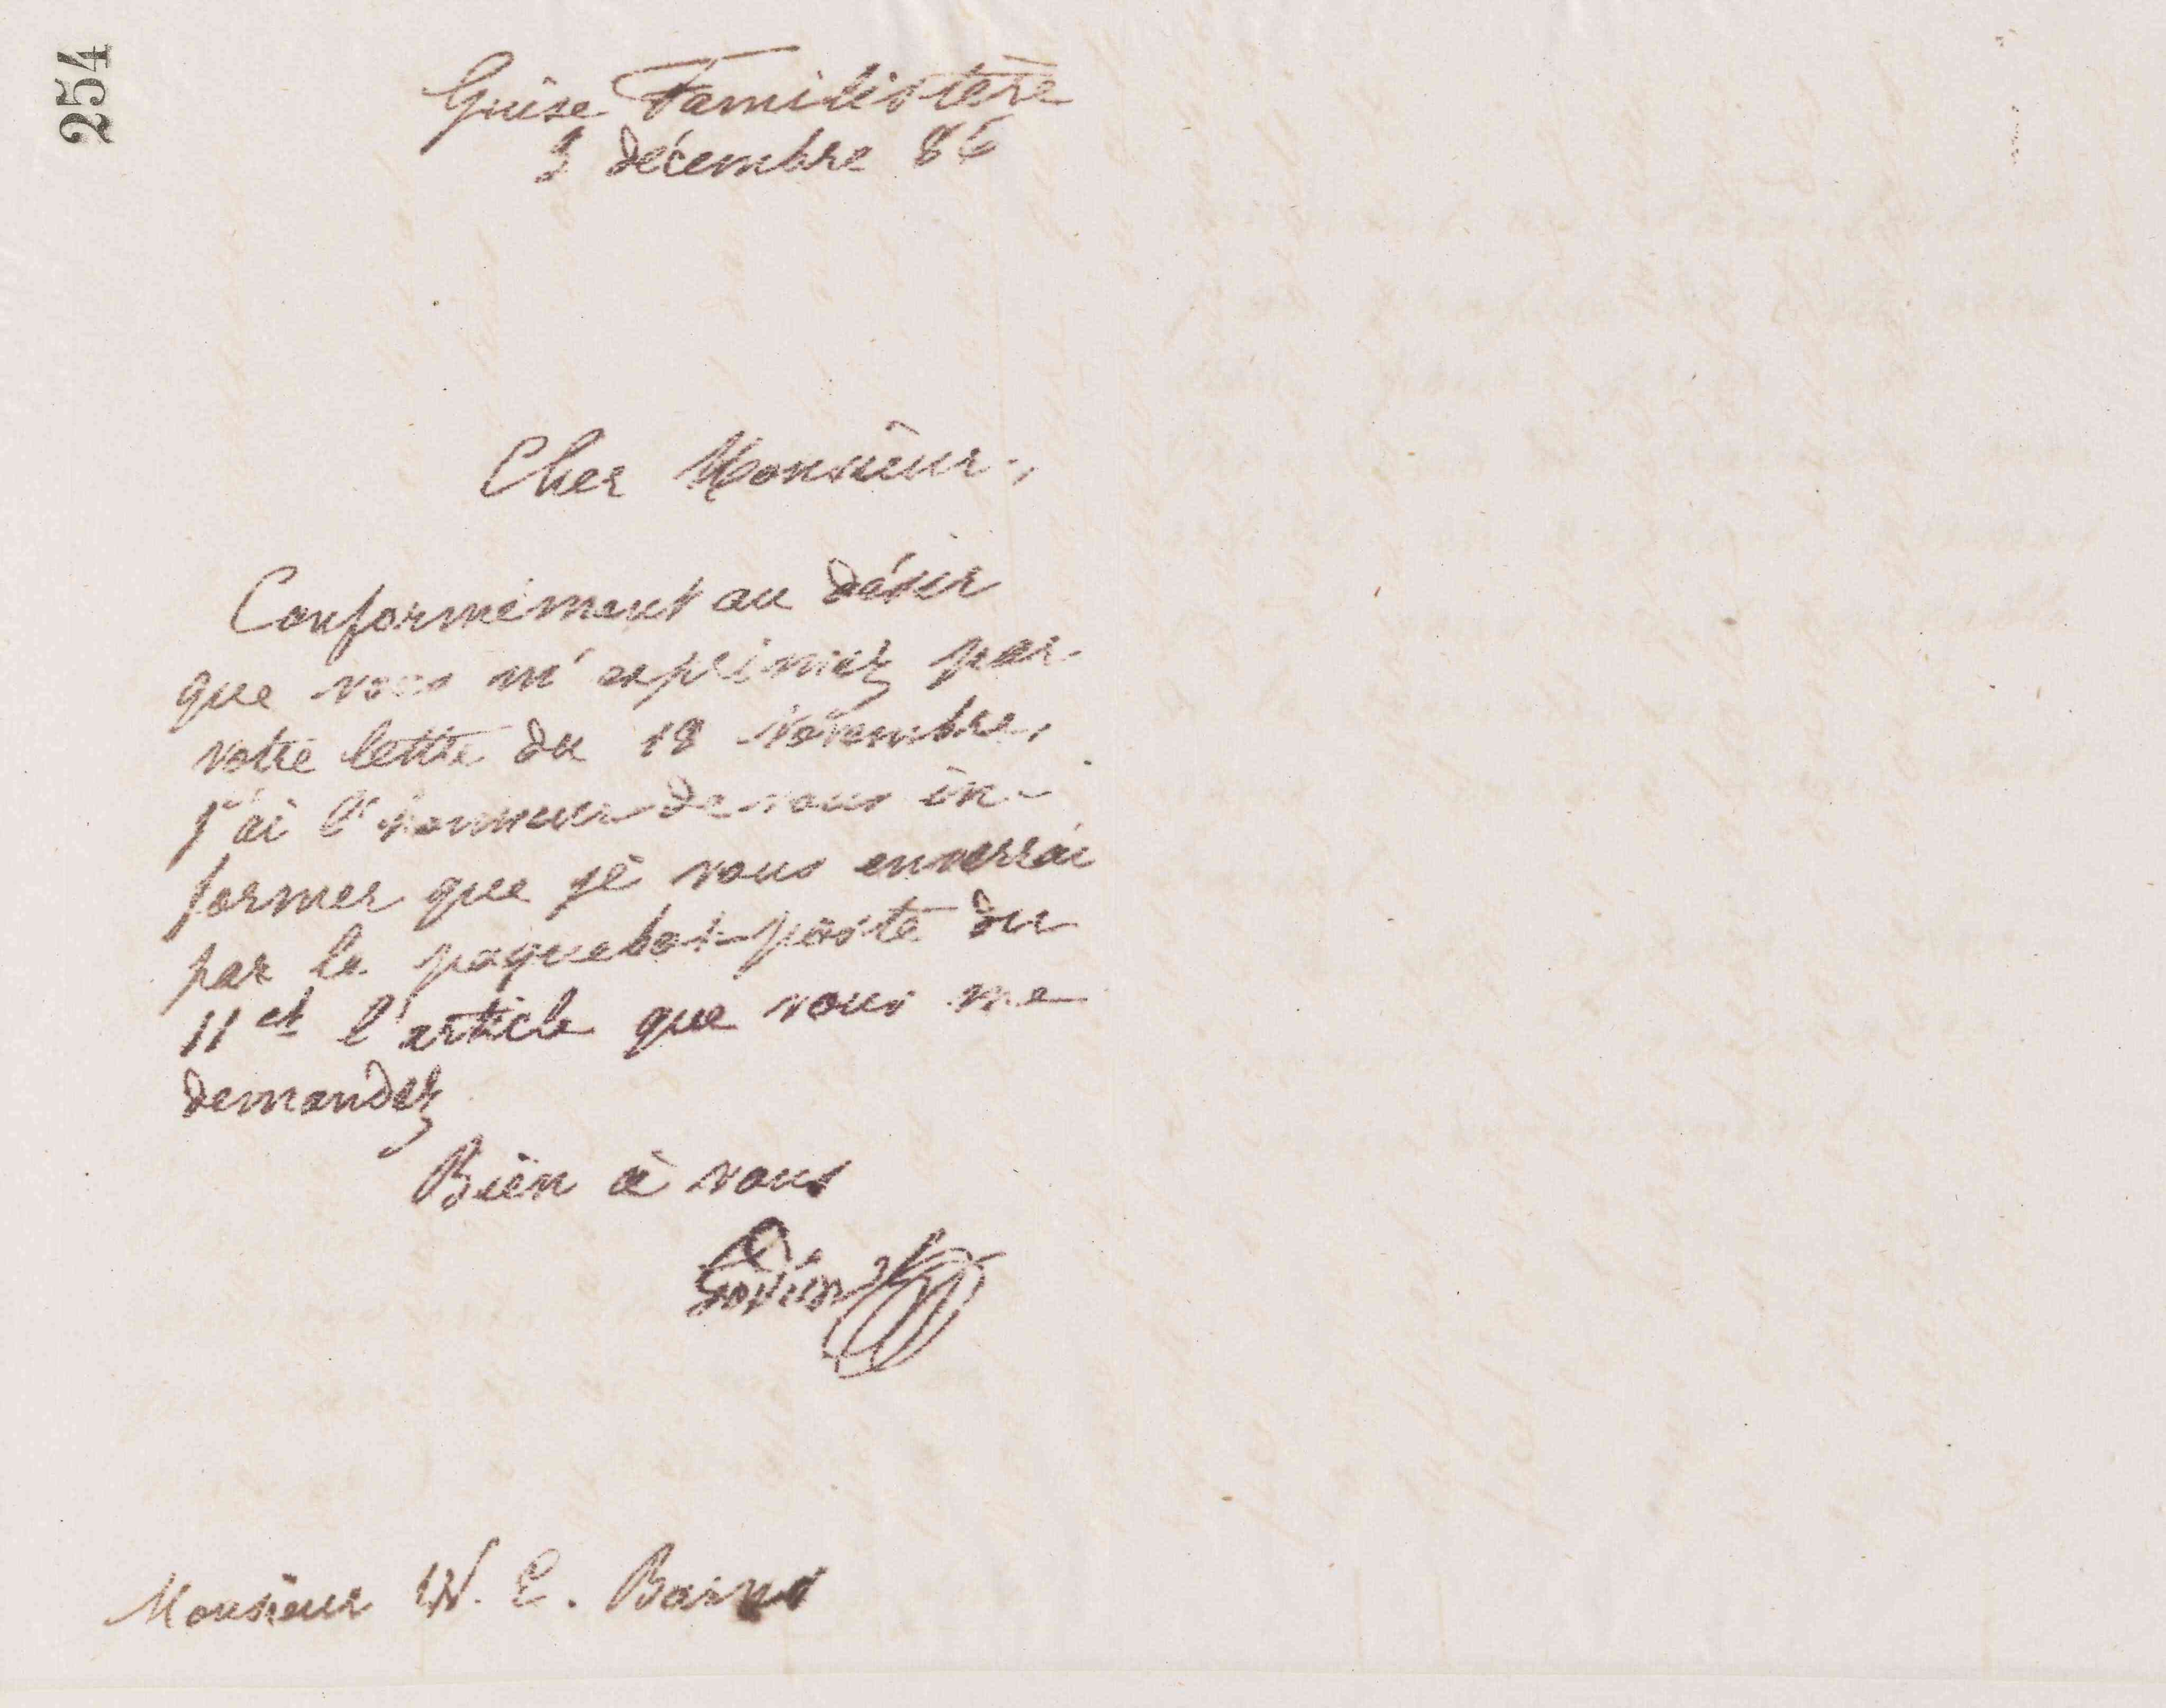 254
Guise Familistère
3 décembre 86
Cher Monsieur,
Conformément au désir
que vous m'exprimez par
votre lettre du 18 novembre,
j'ai l'honneur de vous in-
former que je vous enverrai
par le paquebot-poste du
11 ct l'article que vous me
demandez
Bien à vous
Godin
Monsieur W. E. Barns